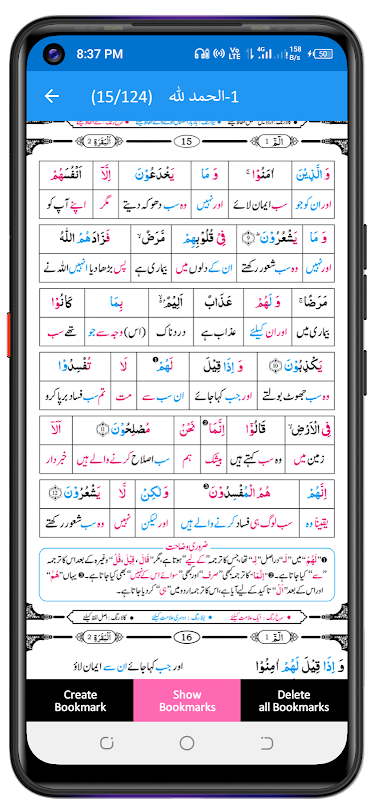 8:37 PM
Vo LTE 4G 158 B/s 50
(15/124) 1-الحمد للہ
البقرة 2 15 الٓمّٓ 1
وَالَّذِيْنَ اٰمَنُوْا ۚ وَمَا يَخْدَعُوْنَ اِلَّاۤ اَنْفُسَهُمْ
اور ان کو جو سب ایمان لائے اور نہیں وہ سب دھوکہ دیتے مگر اپنے آپ کو
وَمَا يَشْعُرُوْنَ ۹ فِيْ قُلُوْبِهِمْ مَّرَضٌ ۙ فَزَادَهُمُ اللّٰهُ
اور نہیں وہ سب شعور رکھتے ان کے دلوں میں بیماری ہے پس بڑھا دیا انہیں اللہ نے
مَرَضًا ۚ وَلَهُمْ عَذَابٌ اَلِيْمٌۢ ۙ بِمَا كَانُوْا
بیماری میں اور ان کیلئے عذاب ہے دردناک (اس) وجہ سے جو تھے سب
يَكْذِبُوْنَ ۱۰ وَاِذَا قِيْلَ لَهُمْ لَا تُفْسِدُوْا
وہ سب جھوٹ بولتے اور جب کہا جائے ان سب سے مت تم سب فساد برپا کرو
فِي الْاَرْضِ ۙ قَالُوْۤا اِنَّمَا نَحْنُ مُصْلِحُوْنَ ۱۱ اَلَاۤ
زمین میں وہ سب کہتے ہیں بیشک ہم سب اصلاح کرنے والے ہیں خبردار
اِنَّهُمْ هُمُ الْمُفْسِدُوْنَ وَلٰكِنْ لَّا يَشْعُرُوْنَ ۱۲
یقیناً وہ سب لوگ ہی فساد کرنے والے ہیں اور لیکن نہیں وہ سب شعور رکھتے
ضروری وضاحت
البقرة 2 16 الٓمّٓ 1
وَاِذَا قِيْلَ لَهُمْ اٰمِنُوْا اور جب کہا جائے ان سے ایمان لاؤ
Create Bookmark
Show Bookmarks
Delete all Bookmarks